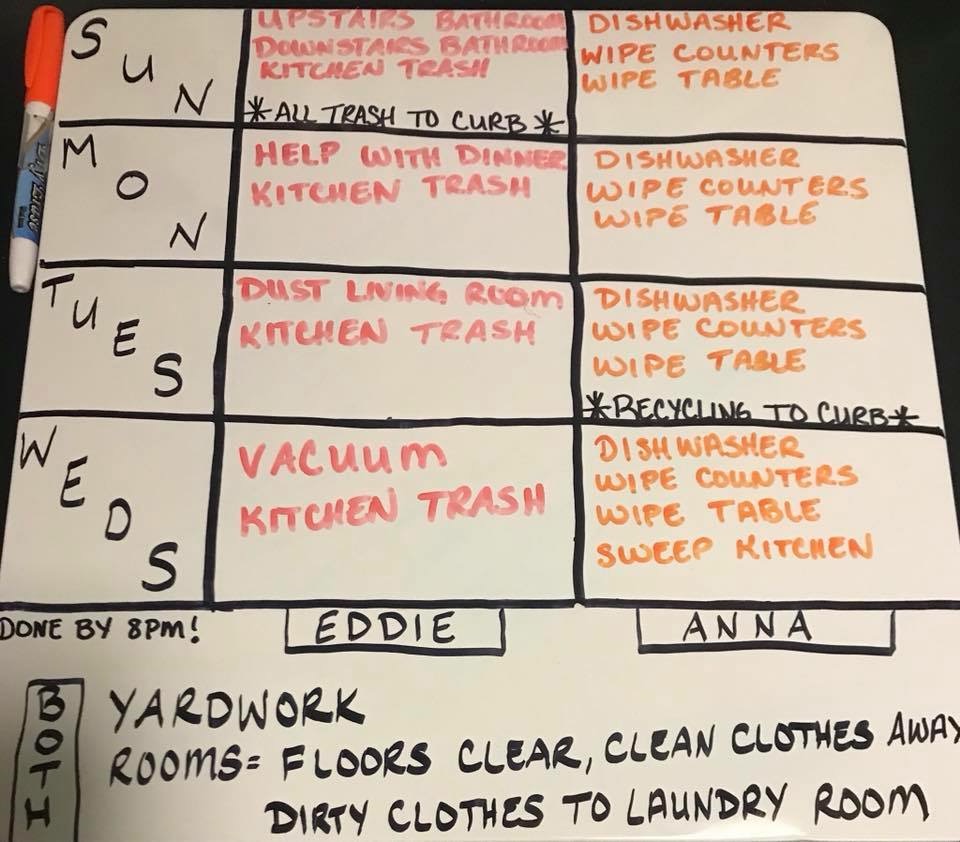 SUN
UPSTAIRS BATHROOM
DOWNSTAIRS BATHROOM
KITCHEN TRASH
*ALL TRASH TO CURB*
DISHWASHER
WIPE COUNTERS
WIPE TABLE
MON
HELP WITH DINNER
KITCHEN TRASH
DISHWASHER
WIPE COUNTERS
WIPE TABLE
TUES
DUST LIVING ROOM
KITCHEN TRASH
DISHWASHER
WIPE COUNTERS
WIPE TABLE
*RECYCLING TO CURB*
WEDS
VACUUM
KITCHEN TRASH
DISHWASHER
WIPE COUNTERS
WIPE TABLE
SWEEP KITCHEN
DONE BY 8PM!
EDDIE
ANNA
BOTH
YARDWORK
ROOMS= FLOORS CLEAR, CLEAN CLOTHES AWAY
DIRTY CLOTHES TO LAUNDRY ROOM